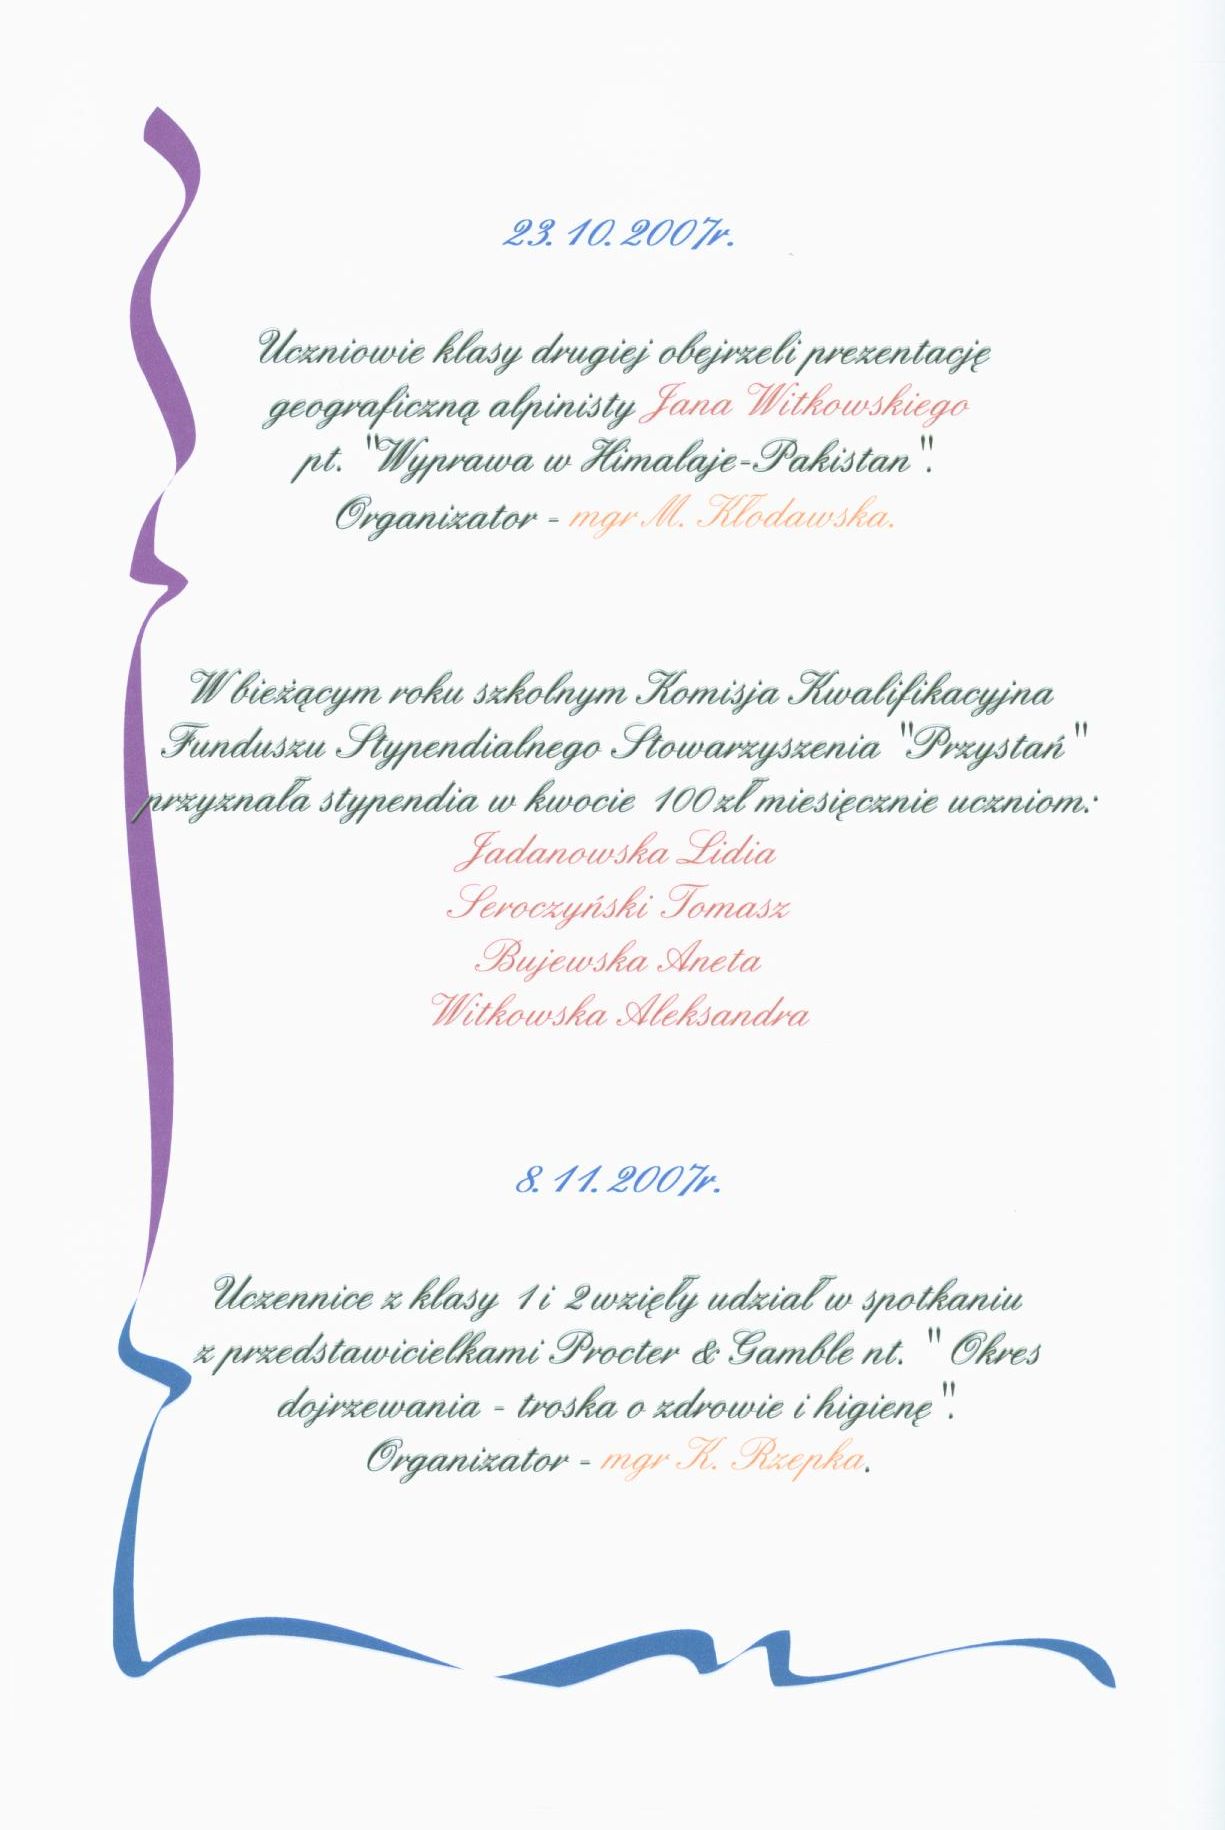 23.10.2007r.
Uczniowie klasy drugiej obejrzeli prezentację
geograficzną alpinisty Jana Witkowskiego
pt. "Wyprawa w Himalaje-Pakistan".
Organizator - mgr M. Kłodawska.
W bieżącym roku szkolnym Komisja Kwalifikacyjna
Funduszu Stypendialnego Stowarzyszenia "Przystań"
przyznała stypendia w kwocie 100 zł miesięcznie uczniom:
Jadanowska Lidia
Seroczyński Tomasz
Bujewska Aneta
Witkowska Aleksandra
8.11.2007r.
Uczennice z klasy 1 i 2 wzięły udział w spotkaniu
z przedstawicielkami Procter & Gamble nt. " Okres
dojrzewania - troska o zdrowie i higienę".
Organizator - mgr K. Rzepka.